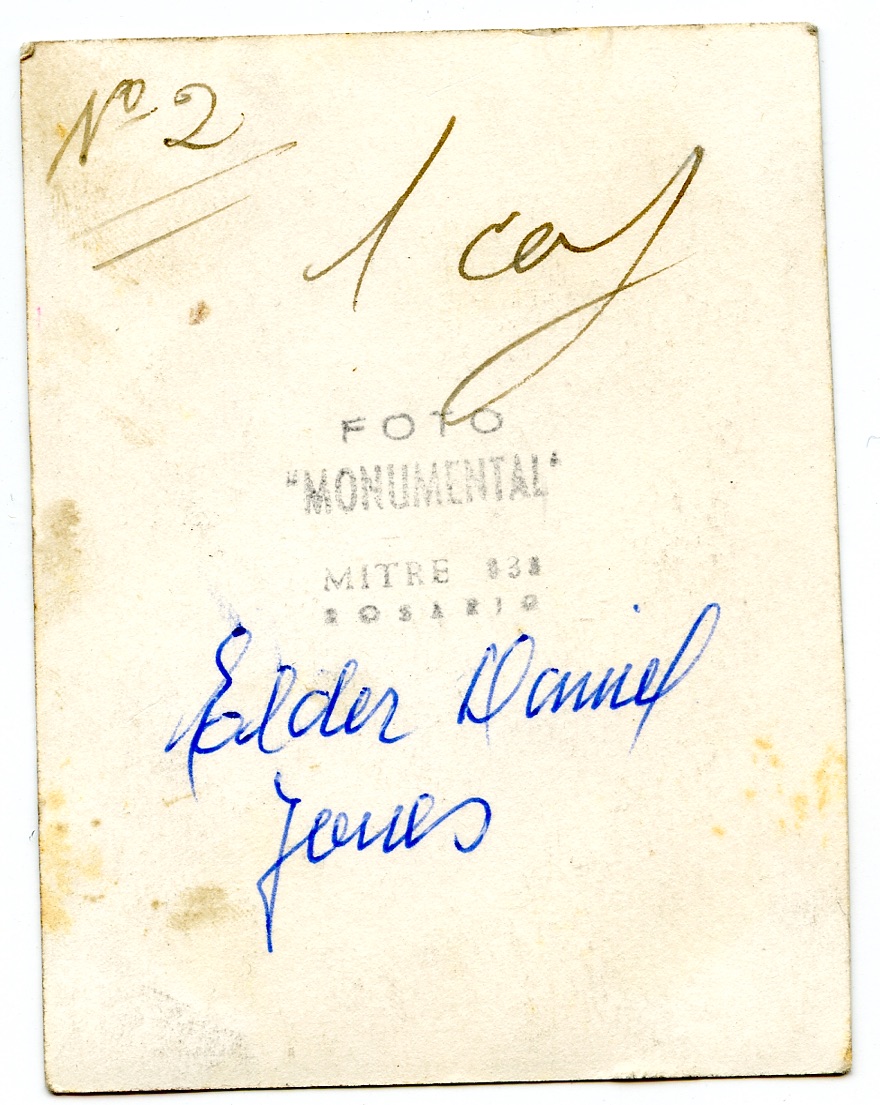 Nº 2
1 cop
FOTO
"MONUMENTAL"
MITRE 838
ROSARIO
Elder Daniel
Jones